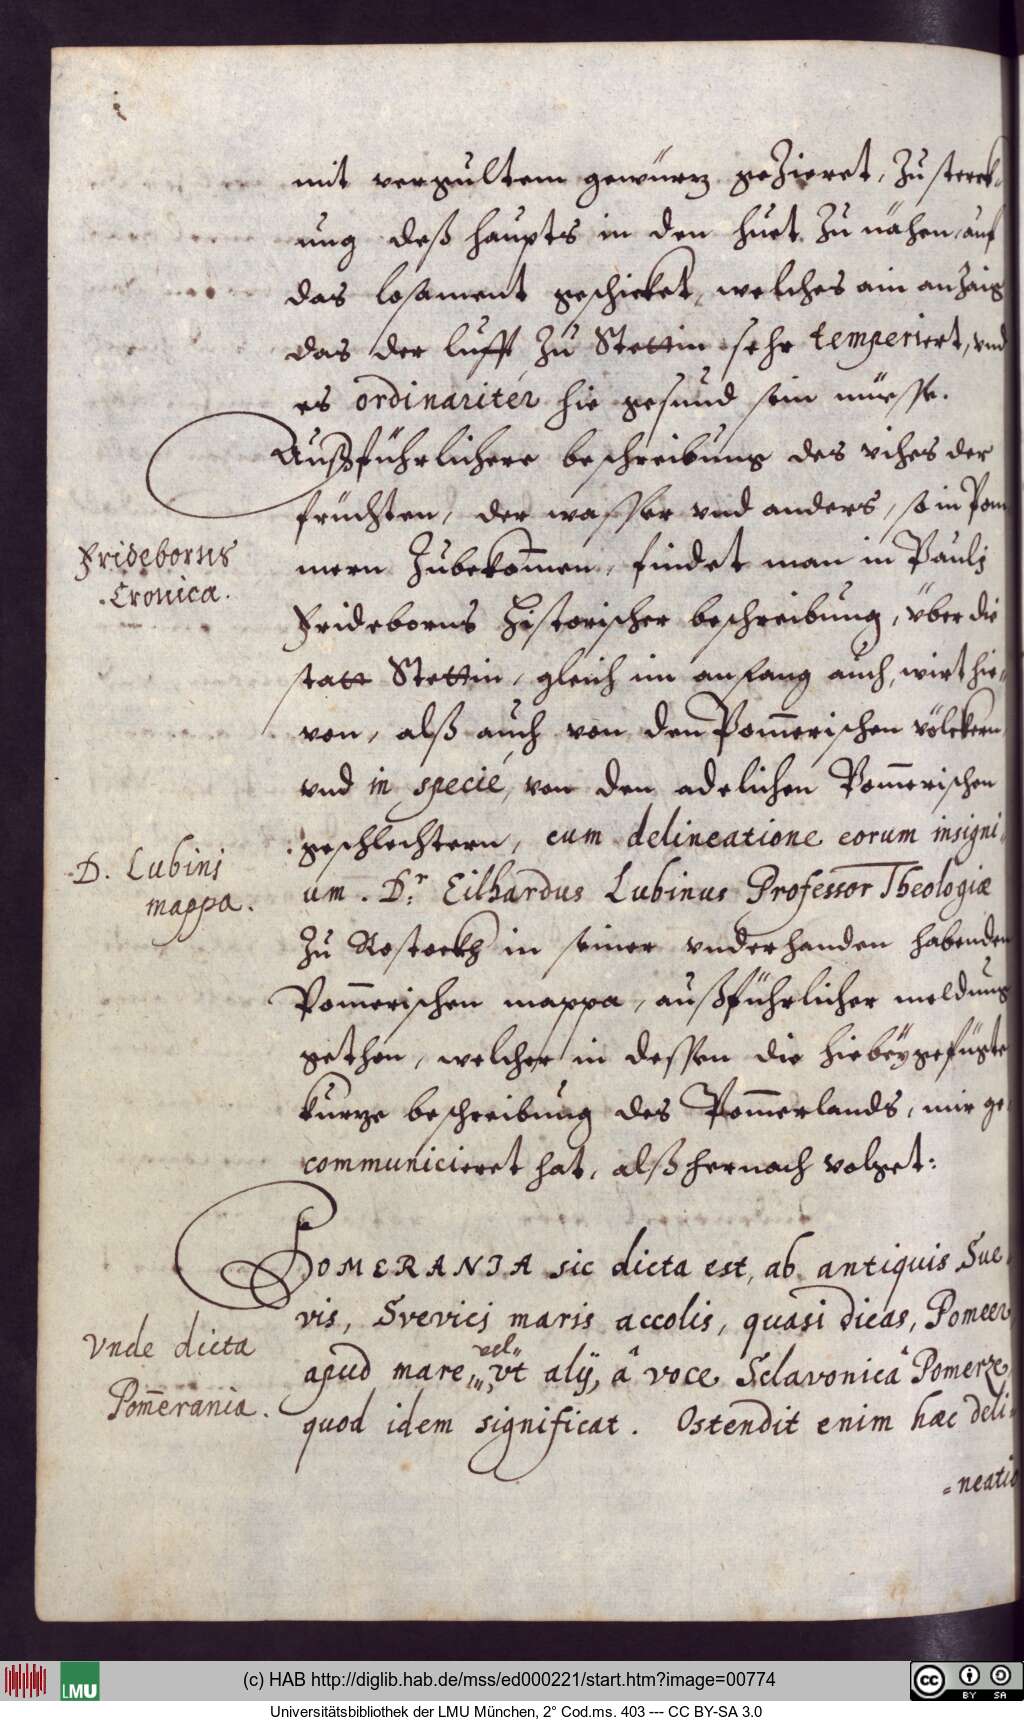 mit vergultem gewürz gezieret, zu sterck-
ung deß haupts in den huet zu nähen, auf
das losament geschicket, welches ain anzaig
das der lufft zu Stettin sehr temperiert, vnd
es ordinariter hie gesund sein müesse.
Außführlichere beschreibung des viches der
früchten, der wasser vnd anders, so in Pom
mern zubekom̄en, findet man in Paulj
Frideborns Historischer beschreibung, über die
statt Stettin, gleich im anfang auch, wirt hie-
von, alß auch von den Pom̄erischen völckern
vnd in specie, von den adelichen Pom̄erischen
geschlechtern, cum delineatione eorum insigni-
um. Dr. Eilhardus Lubinus Professor Theologiæ
zu Rostockh in seiner vnderhanden habenden
Pom̄erischen mappa, außführlicher meldung
gethon, welcher in dessen die hiebeÿgefügte
kurze beschreibung des Pom̄erlands, mir ge-
communicieret hat, alß hernach volget:
Frideborns
Cronica.
D. Lubinj
mappa.
POMERANIA sic dicta est, ab antiquis Sue-
vis, Svevicj maris accolis, quasi dicas, Pomeer
apud mare, vel vt alÿ, â voce Sclavonicâ Pomerze
quod idem significat. Ostendit enim hæc deli-
=neatio
Vnde dicta
Pom̄erania.
(c) HAB http://diglib.hab.de/mss/ed000221/start.htm?image=00774
LMU
cc BY SA
Universitätsbibliothek der LMU München, 2° Cod.ms. 403 --- CC BY-SA 3.0